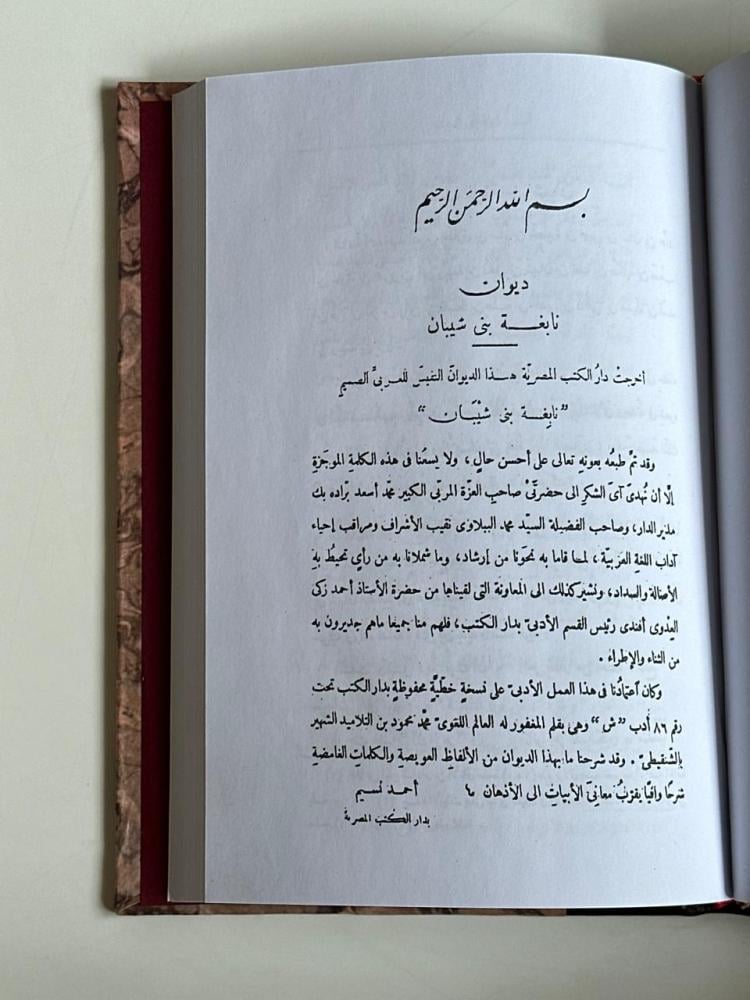 بسم الله الرحمن الرحيم
ديوان
نابغة بنى شيبان
أخرجت دارُ الكتب المصريّة هذا الديوانَ النفيسَ للعربىّ الصميم
”نابِغة بنى شَيْبَان“
وقد تمّ طبعُه بعونِه تعالى على أحسن حالٍ، ولا يسعُنا فى هذه الكلمةِ الموجَزةِ
إلّا أن نُهدىَ آىَ الشكرِ الى حضرتَىْ صاحبِ العزّة المربّى الكبير محمد أسعد برّاده بك
مدير الدار، وصاحب الفضيلة السيّد محمد الببلاوى نقيب الأشراف ومراقب إحياء
آداب اللغة العربيّة، لمـا قاما به نحوَنا من إرشاد، وما شملانا به من رأي تحيطُ به
الأصالة والسداد، ونشير كذلك الى المعاونة التى لقيناها من حضرة الأستاذ أحمد زكى
العِدْوى أفندى رئيس القسم الأدبىّ بدار الكتب، فلهم منا جميعًا ماهم جديرون به
من الثناء والإطراء.
وكان اعتمادُنا فى هذا العمل الأدبىّ على نسخةٍ خطيّةٍ محفوظةٍ بدار الكتب تحت
رقم ٨٦ أدب ”ش“ وهى بقلم المغفور له العالم اللغوىّ محمد محمود بن التلاميد الشهير
بالشنقيطىّ. وقد شرحنا ما بهذا الديوان من الألفاظ العويصة والكلمات الغامضة
شرحًا وافيًا يقرّبُ معانِىَ الأبياتِ الى الأذهان
أحمد نسيم
بدار الكتب المصرية